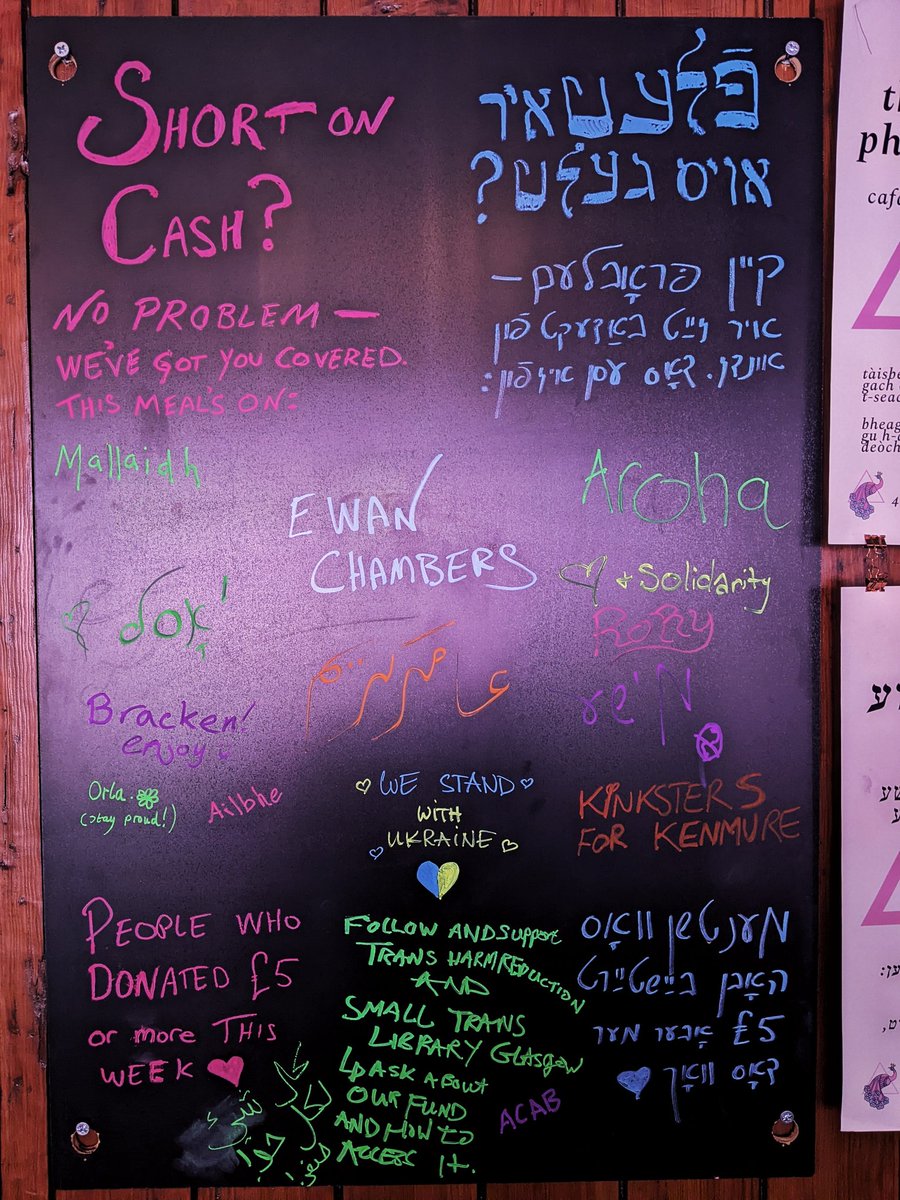 SHORT ON
CASH?
NO PROBLEM —
WE'VE GOT YOU COVERED.
THIS MEAL'S ON:
אויס געלט?
קיין פּראָבלעם —
איר זײַט באַדעקט פֿון
אונדז. דאָס עסן איז פֿון:
Mallaidh
EWAN
CHAMBERS
Aroha
+ Solidarity
RORY
Bracken!
enjoy
Orla
(stay proud!)
Ailbhe
WE STAND
WITH
UKRAINE
KINKSTERS
FOR KENMURE
PEOPLE WHO
DONATED £5
or more THIS
WEEK
FOLLOW AND SUPPORT
TRANS HARM REDUCTION
AND
SMALL TRANS
LIBRARY GLASGOW
ASK ABOUT
OUR FUND
AND HOW TO
ACCESS IT.
ACAB
מענטשן וואָס
האָבן
£5 אָבער מער
דאָס וואָך
ph
cafe
gach